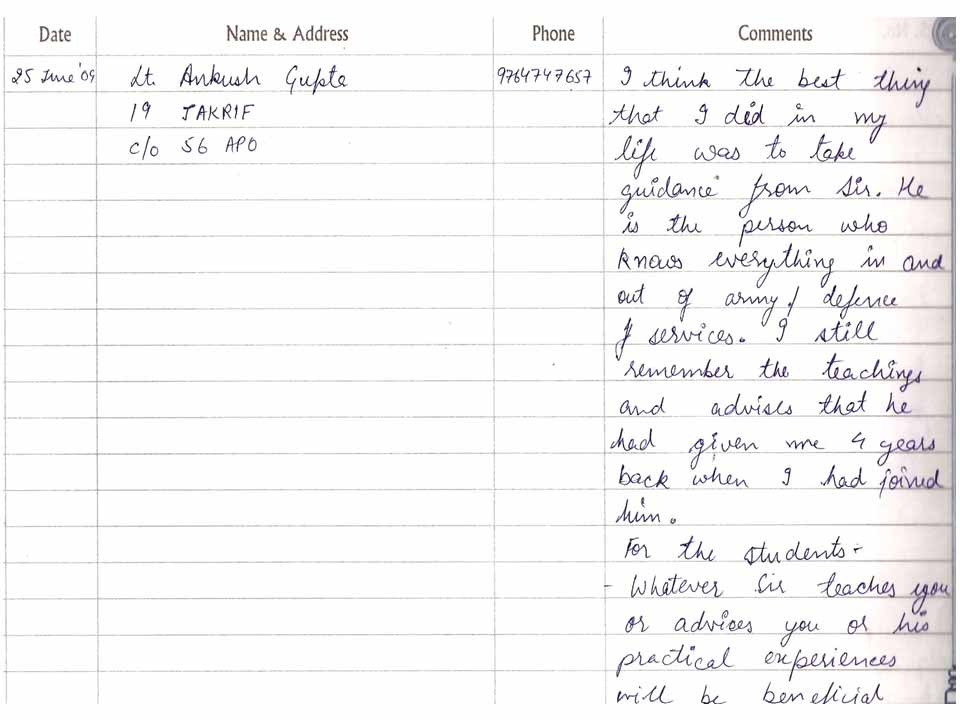 Date Name & Address Phone Comments
25 June '09 Lt. Ankush Gupta 9764747657 I think the best thing
19 JAKRIF that I did in my
c/o 56 APO life was to take
guidance from Sir. He
is the person who
knows everything in and
out of army / defence
services. I still
remember the teachings
and advises that he
had given me 4 years
back when I had joined
him.
For the students -
- Whatever Sir teaches you
or advices you or his
practical experiences
will be beneficial